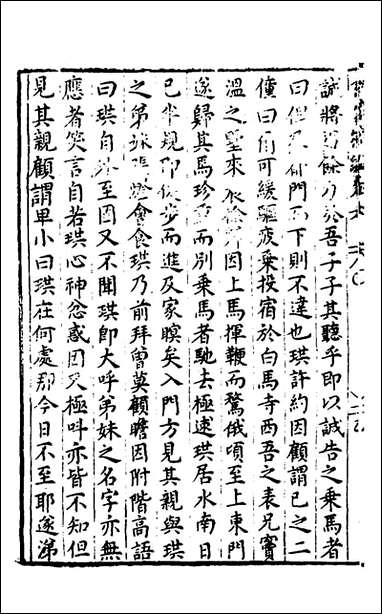 誠將酋餘力於吾子子其聽乎即以誠告之乘馬者
曰但及都門而下則不違也珙許約因顧謂己之二
僮曰自可緩驅疲乘投宿於白馬寺西吾之表兄竇
溫之墅來辰徐歸因上馬揮鞭而騖俄頃至上東門
遂歸其馬珍重而別乘馬者馳去極速珙居水南日
已半規即促步而進及家暝矣入門方見其親與珙
之弟妹張燈會食珙乃前拜曾莫顧瞻因附階高語
曰珙自外至因又不聞珙即大呼弟妹之名字亦無
應者笑言自若珙心神忿惑因又極呌亦皆不知但
見其親顧謂卑小曰珙在何處那今日不至耶遂涕